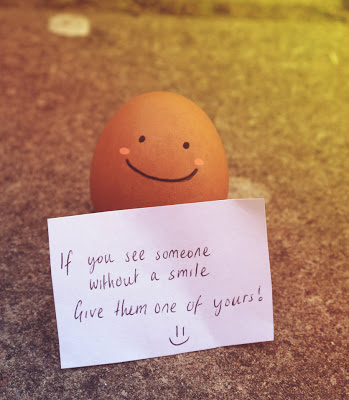 If you see someone
without a smile
Give them one of yours!